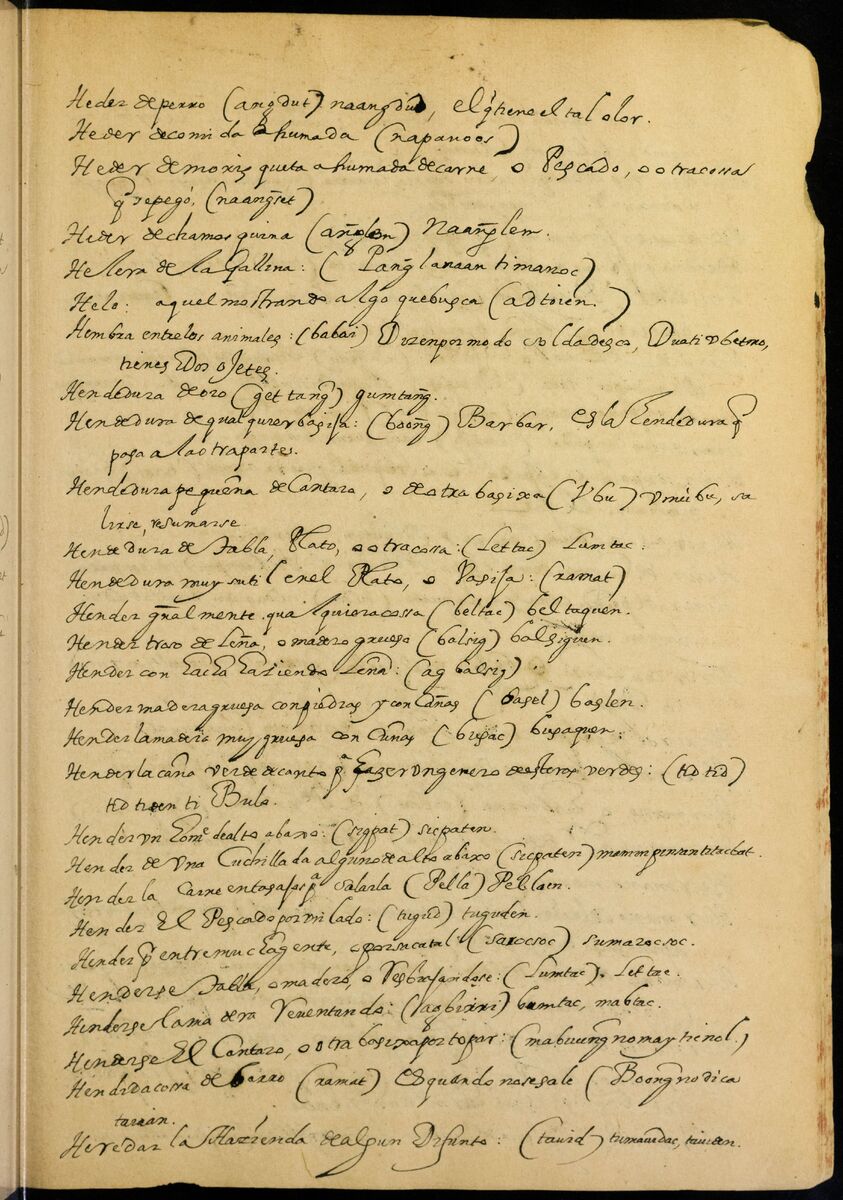 Heder de perro (angdut) naangdut, el q̃ tiene el tal olor.
Heder de comida ahumada (napanoos)
Heder de morisqueta ahumada de carne, o Pescado, o otra cossa
q̃ se pegó, (naang̃set)
Heder de chamosquina (añglem) Naañglem.
Helera de la Gallina: (Pang̃lanaan ti manoc)
Helo: aquel mostrando algo que busca (adtoien.)
Hembra entre los animales: (babai) Dizen por modo soldadesco, Duati ubetmo,
tienes Dos ojetes.
Hendedura de oro (get tang̃) gumtang̃.
Hendedura de qualquier basija: (boong̃) Barbar, es la hendedura q̃
pasa a la otra parte.
Hendedura pequeña de Cantaro, o de otra basixa (Ubu) umubu, sa
lirse, resumarse
Hendedura de Tabla, Plato, o otra cossa: (Lettac) Lumtac.
Hendedura muy sutil en el Plato, o Vasija: (ramat)
Hender gñalmente qualquiera cossa (beltac) beltaquen.
Hender troso de Leña, o madero gruesso (balsig) balsiguen.
Hender con hacha haziendo Leña: (ag balsig).
Hender madera gruesa con piedras y con Cañas (basel) baslen.
Hender la madera muy gruesa con Cuñas (busac) busaquen.
Hender la caña verde de canto pª hazer un genero de esteras verdes: (tid tid)
tid tiden ti Bulo.
Hender un homᵉ de alto abaxo: (sigpat) sicpaten.
Hender de una Cuchillada alguno de alto abaxo (sicpaten)
Hender la Carne en tasajos pª salarla (Pella) Pellaen.
Hender El Pescado por un lado: (tugud) tuguden.
Hender pʳ entre mucha gente, o por sacatal (sarocsoc) sumarocsoc.
Henderse Tabla, o madero, o resbrajandose: (Lumtac). Lettac.
Henderse la madera reventando: (agbirri) bumtac, mabtac.
Henderse El Cantaro, o otra basixa por topar: (mabuung no maytienol.)
Hendida cossa de barro (ramat) es quando no se sale (Boong no dica
taraan.
Heredar la Hazienda de algun Difunto: (tavid) tumavidac, taviden.